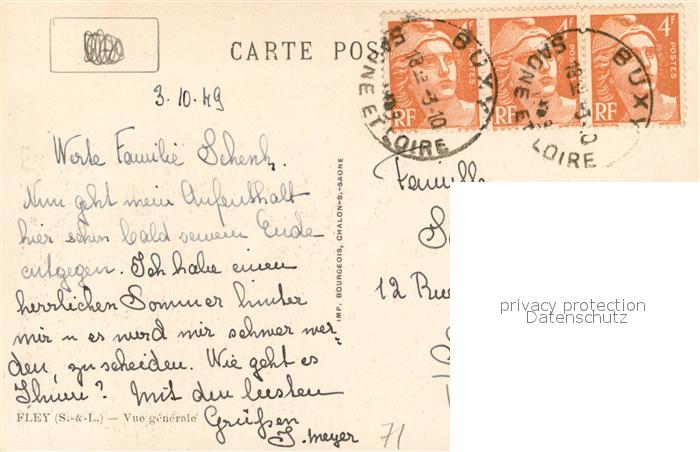 CARTE POS
4F
POSTES
RF
4F
POSTES
RF
4F
POSTES
RF
BUXY
18 12 -3-10
SAONE ET LOIRE
BUXY
18 12 -3-10
SAONE ET LOIRE
3.10.49
Werte Familie Schenk.
Nun geht mein Aufenthalt
hier schon bald seinem Ende
entgegen. Ich habe einen
herrlichen Sommer hinter
mir u es wird mir schwer wer-
den, zu scheiden. Wie geht es
Ihnen? Mit den besten
Grüßen
J. Meyer
FLEY (S.-&-L.) — Vue générale
IMP. BOURGEOIS, CHALON-S.-SAONE
Famille
12 Rue
71
privacy protection
Datenschutz